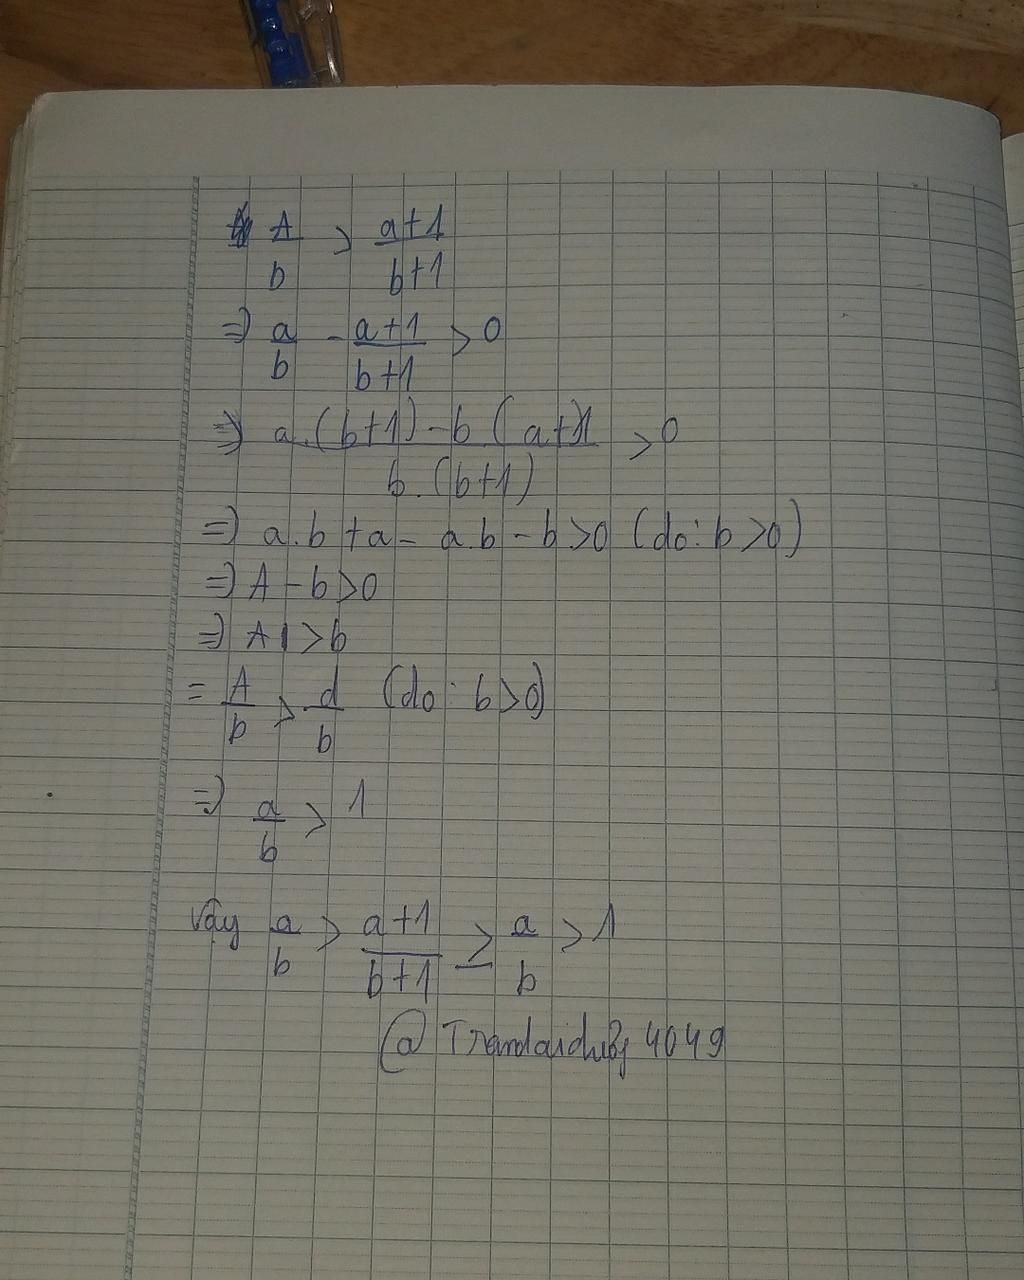 A/b > a+1/b+1
=) a/b - a+1/b+1 > 0
=) a.(b+1)-b(a+1)/b.(b+1) > 0
=) a.b+a-a.b-b>0 (do: b>0)
=) A-b>0
=) A >b
= A/b > d/b (do: b>0)
=) a/b > 1
Vậy a/b > a+1/b+1 ≥ a/b > 1
@ 4049